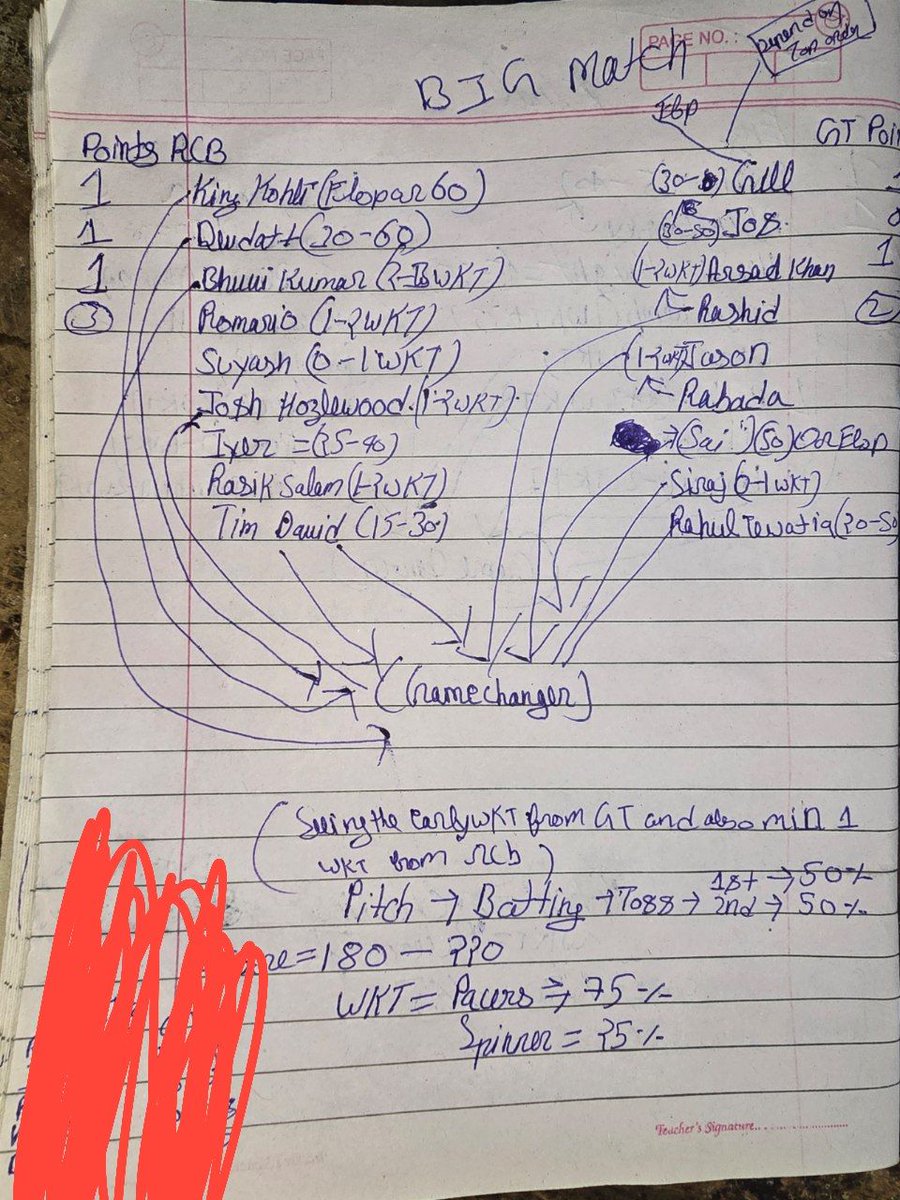 PAGE NO.:
Depend on Top order
BIG Match
Flop
Points RCB
GT Poin
1 King Kohli (Flop or 60) (30-) Gill
1 Devdatt (20-60) (30-50) Jos
1 Bhuvi Kumar (2-3 WKT) (1-2 WKT) Arsad Khan 1
3 Romario (1-2 WKT) Rashid 2
Suyash (0-1 WKT) (1-2 WKT) Jason
Josh Hozlewood (1-2 WKT) Rabada
Iyer = (25-40) (Sai) (50) Or Flop
Rasik Salam (1-2 WKT) Siraj (0-1 WKT)
Tim David (15-30) Rahul Tewatia (20-50
(Gamechanger)
(Seeing the Early WKT from GT and also min 1
WKT from RCb)
1st → 50%
Pitch → Batting → Toss → 2nd → 50%
= 180 - 220
WKT = Pacers ⇒ 75%
Spinner = 25%
Teacher's Signature